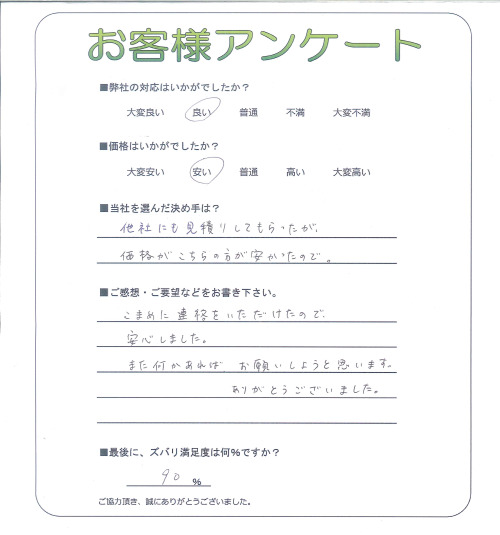 お客様アンケート
■弊社の対応はいかがでしたか？
大変良い 良い 普通 不満 大変不満
■価格はいかがでしたか？
大変安い 安い 普通 高い 大変高い
■当社を選んだ決め手は？
他社にも見積りしてもらったが、
価格がこちらの方が安かったので。
■ご感想・ご要望などをお書き下さい。
こまめに連絡をいただけたので、
安心しました。
また何かあれば お願いしようと思います。
ありがとうございました。
■最後に、ズバリ満足度は何%ですか？
90 %
ご協力頂き、誠にありがとうございました。